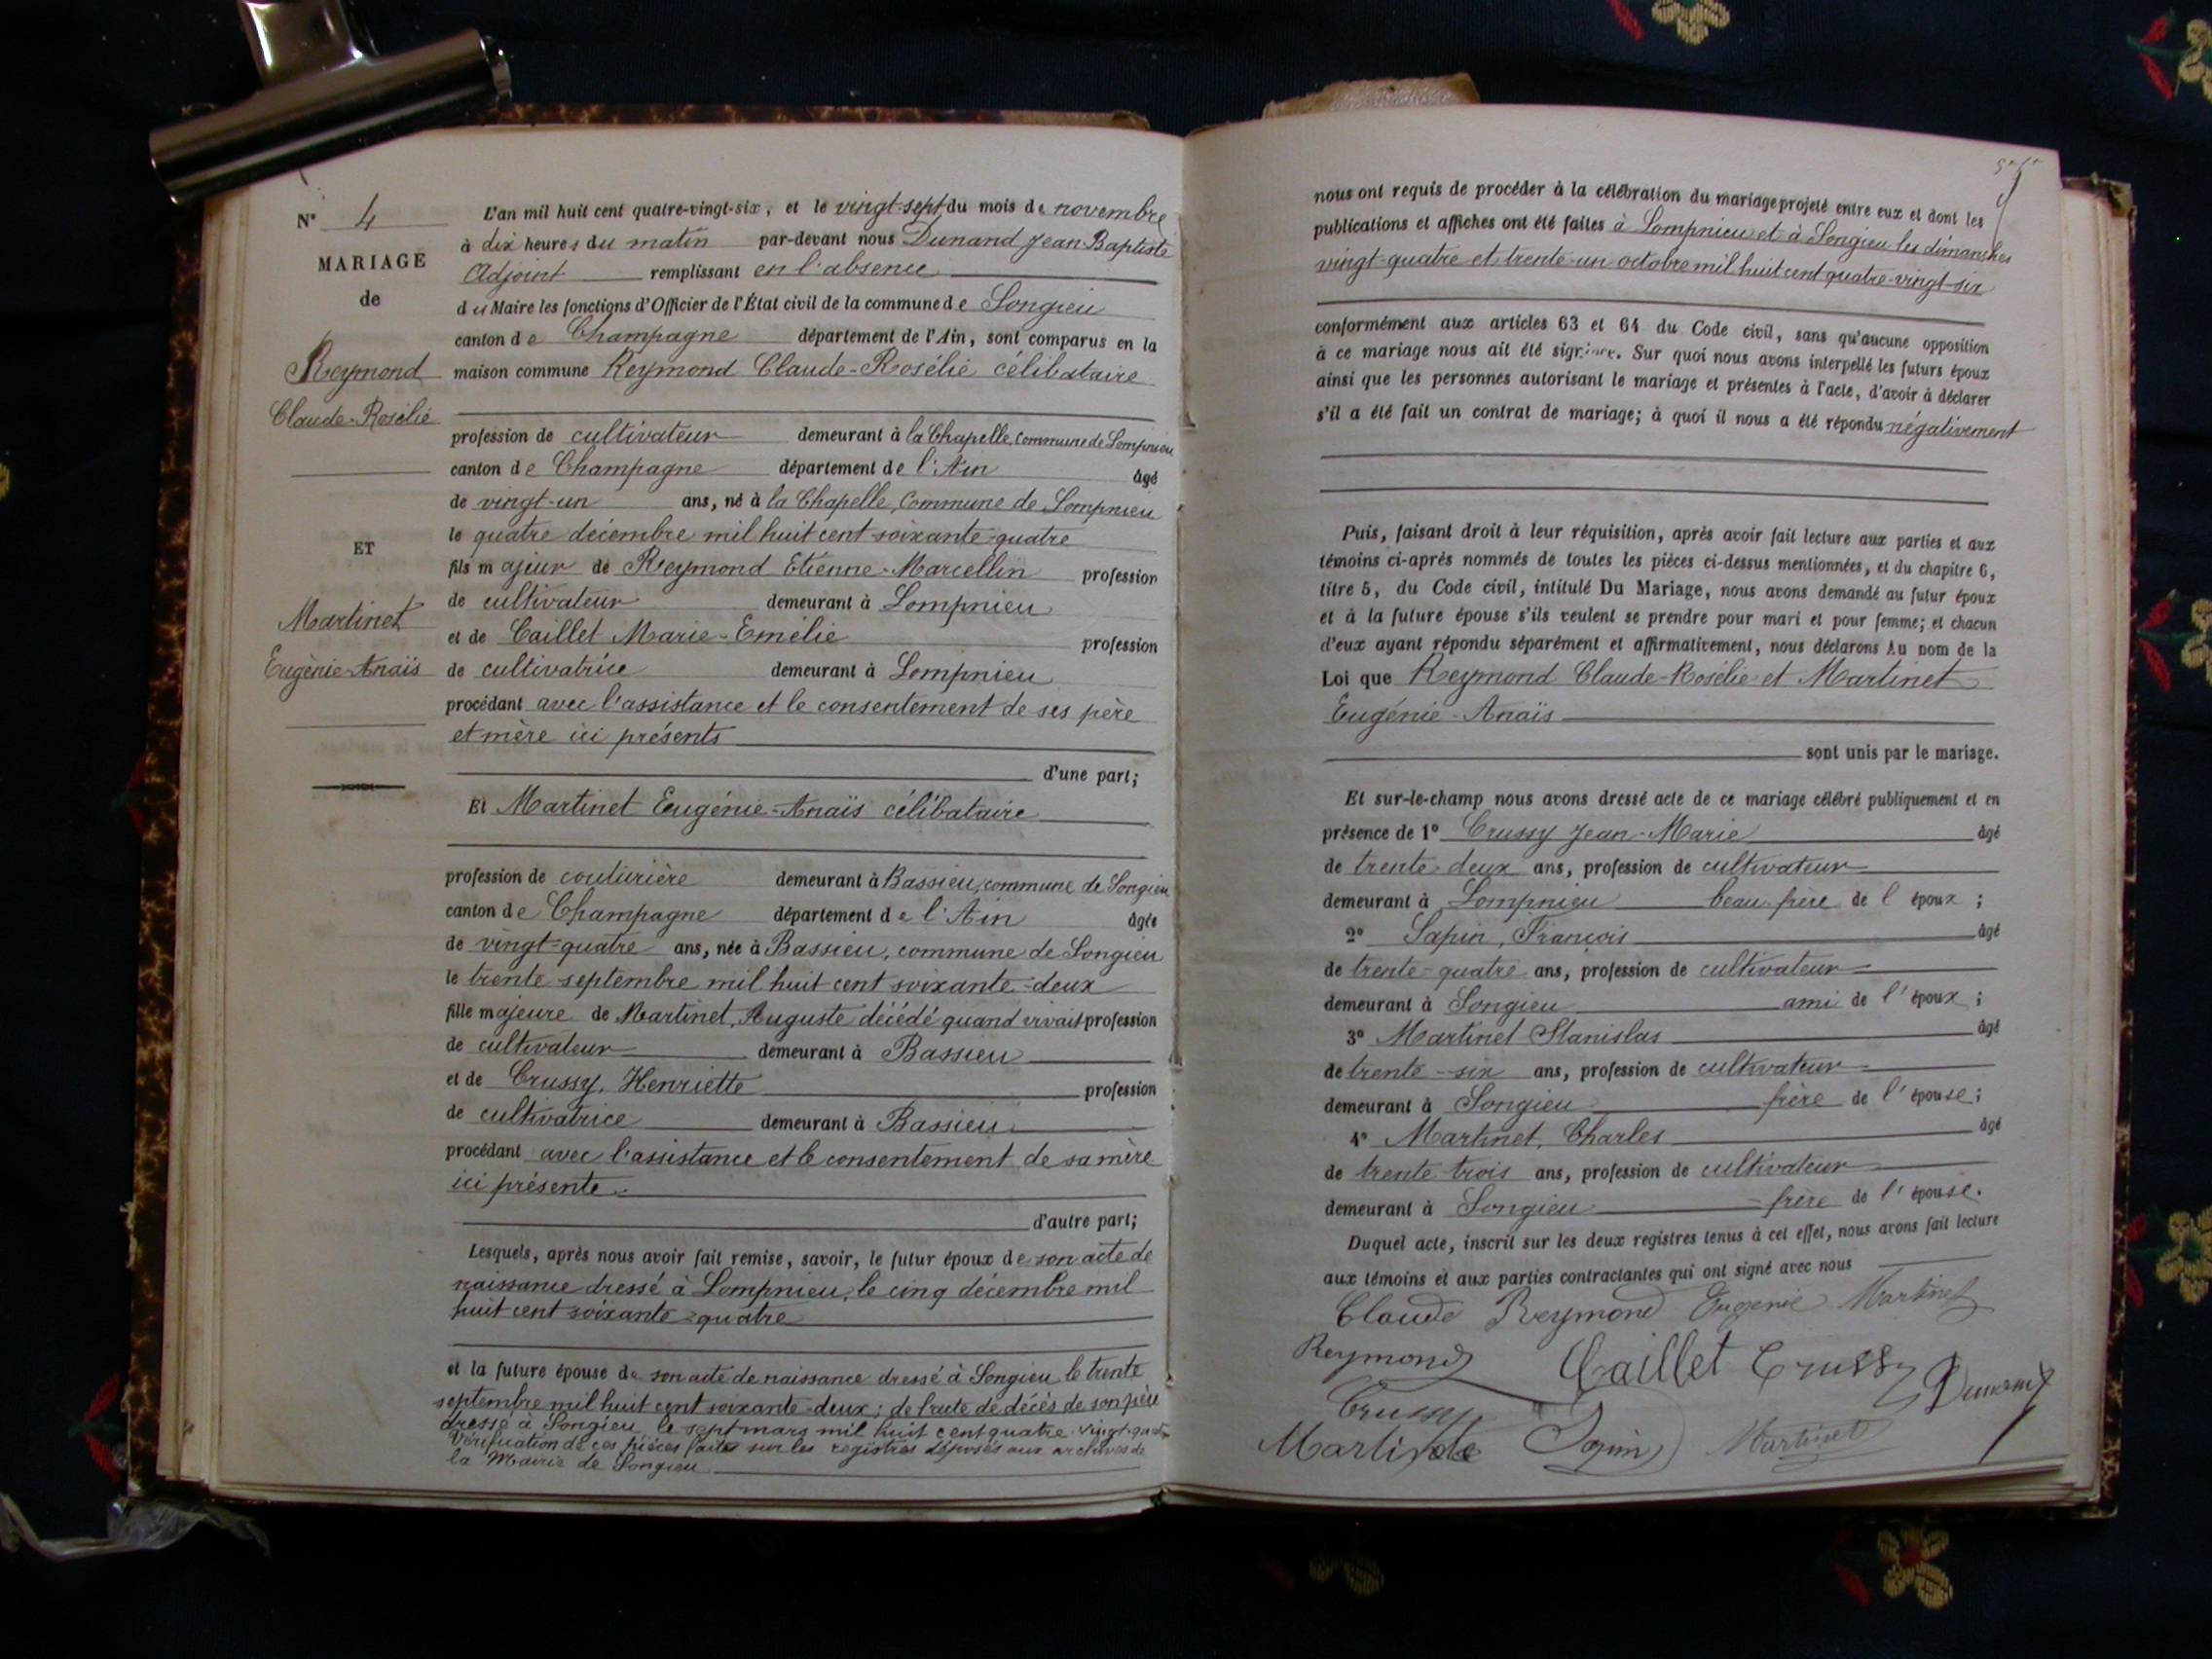 N° 4
MARIAGE
de
Reymond
Claude-Rosélie
ET
Martinet
Eugènie-Anaïs
L'an mil huit cent quatre-vingt-six, et le vingt-sept du mois de novembre
à dix heures du matin par-devant nous Dunand Jean-Baptiste
Adjoint remplissant en l'absence
du Maire les fonctions d'Officier de l'État civil de la commune de Songieu
canton de Champagne département de l'Ain, sont comparus en la
maison commune Reymond Claude-Rosélie célibataire
profession de cultivateur demeurant à la Chapelle, commune de Lompnieu
canton de Champagne département de l'Ain âgé
de vingt-un ans, né à la Chapelle, Commune de Lompnieu
le quatre décembre mil huit cent soixante-quatre
fils majeur de Reymond Etienne-Marcellin profession
de cultivateur demeurant à Lompnieu
et de Caillet Marie-Emélie profession
de cultivatrice demeurant à Lompnieu
procédant avec l'assistance et le consentement de ses père
et mère ici présents
d'une part;
Et Martinet Eugénie-Anaïs célibataire
profession de couturière demeurant à Bassieu, commune de Songieu
canton de Champagne département de l'Ain âgée
de vingt-quatre ans, née à Bassieu, commune de Songieu
le trente septembre mil huit cent soixante-deux
fille majeure de Martinet, Auguste décédé quand vivait profession
de cultivateur demeurant à Bassieu
et de Crussy, Henriette profession
de cultivatrice demeurant à Bassieu
procédant avec l'assistance et le consentement de sa mère
ici présente
d'autre part;
Lesquels, après nous avoir fait remise, savoir, le futur époux de son acte de
naissance dressé à Lompnieu, le cinq décembre mil
huit cent soixante-quatre
et la future épouse de son acte de naissance dressé à Songieu le trente
septembre mil huit cent soixante-deux; de l'acte de décès de son père
dressé à Songieu le sept mars mil huit cent quatre-vingt-
Vérification de ces pièces faite sur les registres déposés aux archives de
la Mairie de Songieu
nous ont requis de procéder à la célébration du mariage projeté entre eux et dont les
publications et affiches ont été faites à Lompnieu et à Songieu les dimanches
vingt-quatre et trente-un octobre mil huit cent quatre-vingt-six
conformément aux articles 63 et 64 du Code civil, sans qu'aucune opposition
à ce mariage nous ait été signifiée. Sur quoi nous avons interpellé les futurs époux
ainsi que les personnes autorisant le mariage et présentes à l'acte, d'avoir à déclarer
s'il a été fait un contrat de mariage; à quoi il nous a été répondu négativement
Puis, faisant droit à leur réquisition, après avoir fait lecture aux parties et aux
témoins ci-après nommés de toutes les pièces ci-dessus mentionnées, et du chapitre 6,
titre 5, du Code civil, intitulé Du Mariage, nous avons demandé au futur époux
et à la future épouse s'ils veulent se prendre pour mari et pour femme; et chacun
d'eux ayant répondu séparément et affirmativement, nous déclarons Au nom de la
Loi que Reymond Claude-Rosélie et Martinet
Eugénie-Anaïs
sont unis par le mariage.
Et sur-le-champ nous avons dressé acte de ce mariage célébré publiquement et en
présence de 1° Crussy Jean-Marie âgé
de trente-deux ans, profession de cultivateur
demeurant à Lompnieu beau-frère de l'époux;
2° Sapin, François âgé
de trente-quatre ans, profession de cultivateur
demeurant à Songieu ami de l'époux;
3° Martinet Stanislas âgé
de trente-six ans, profession de cultivateur
demeurant à Songieu frère de l'épouse;
4° Martinet, Charles âgé
de trente-trois ans, profession de cultivateur
demeurant à Songieu frère de l'épouse.
Duquel acte, inscrit sur les deux registres tenus à cet effet, nous avons fait lecture
aux témoins et aux parties contractantes qui ont signé avec nous
Claude Reymond Eugenie Martinet
Reymond Caillet Crussy Dunand
Crussy
Sapin Martinet